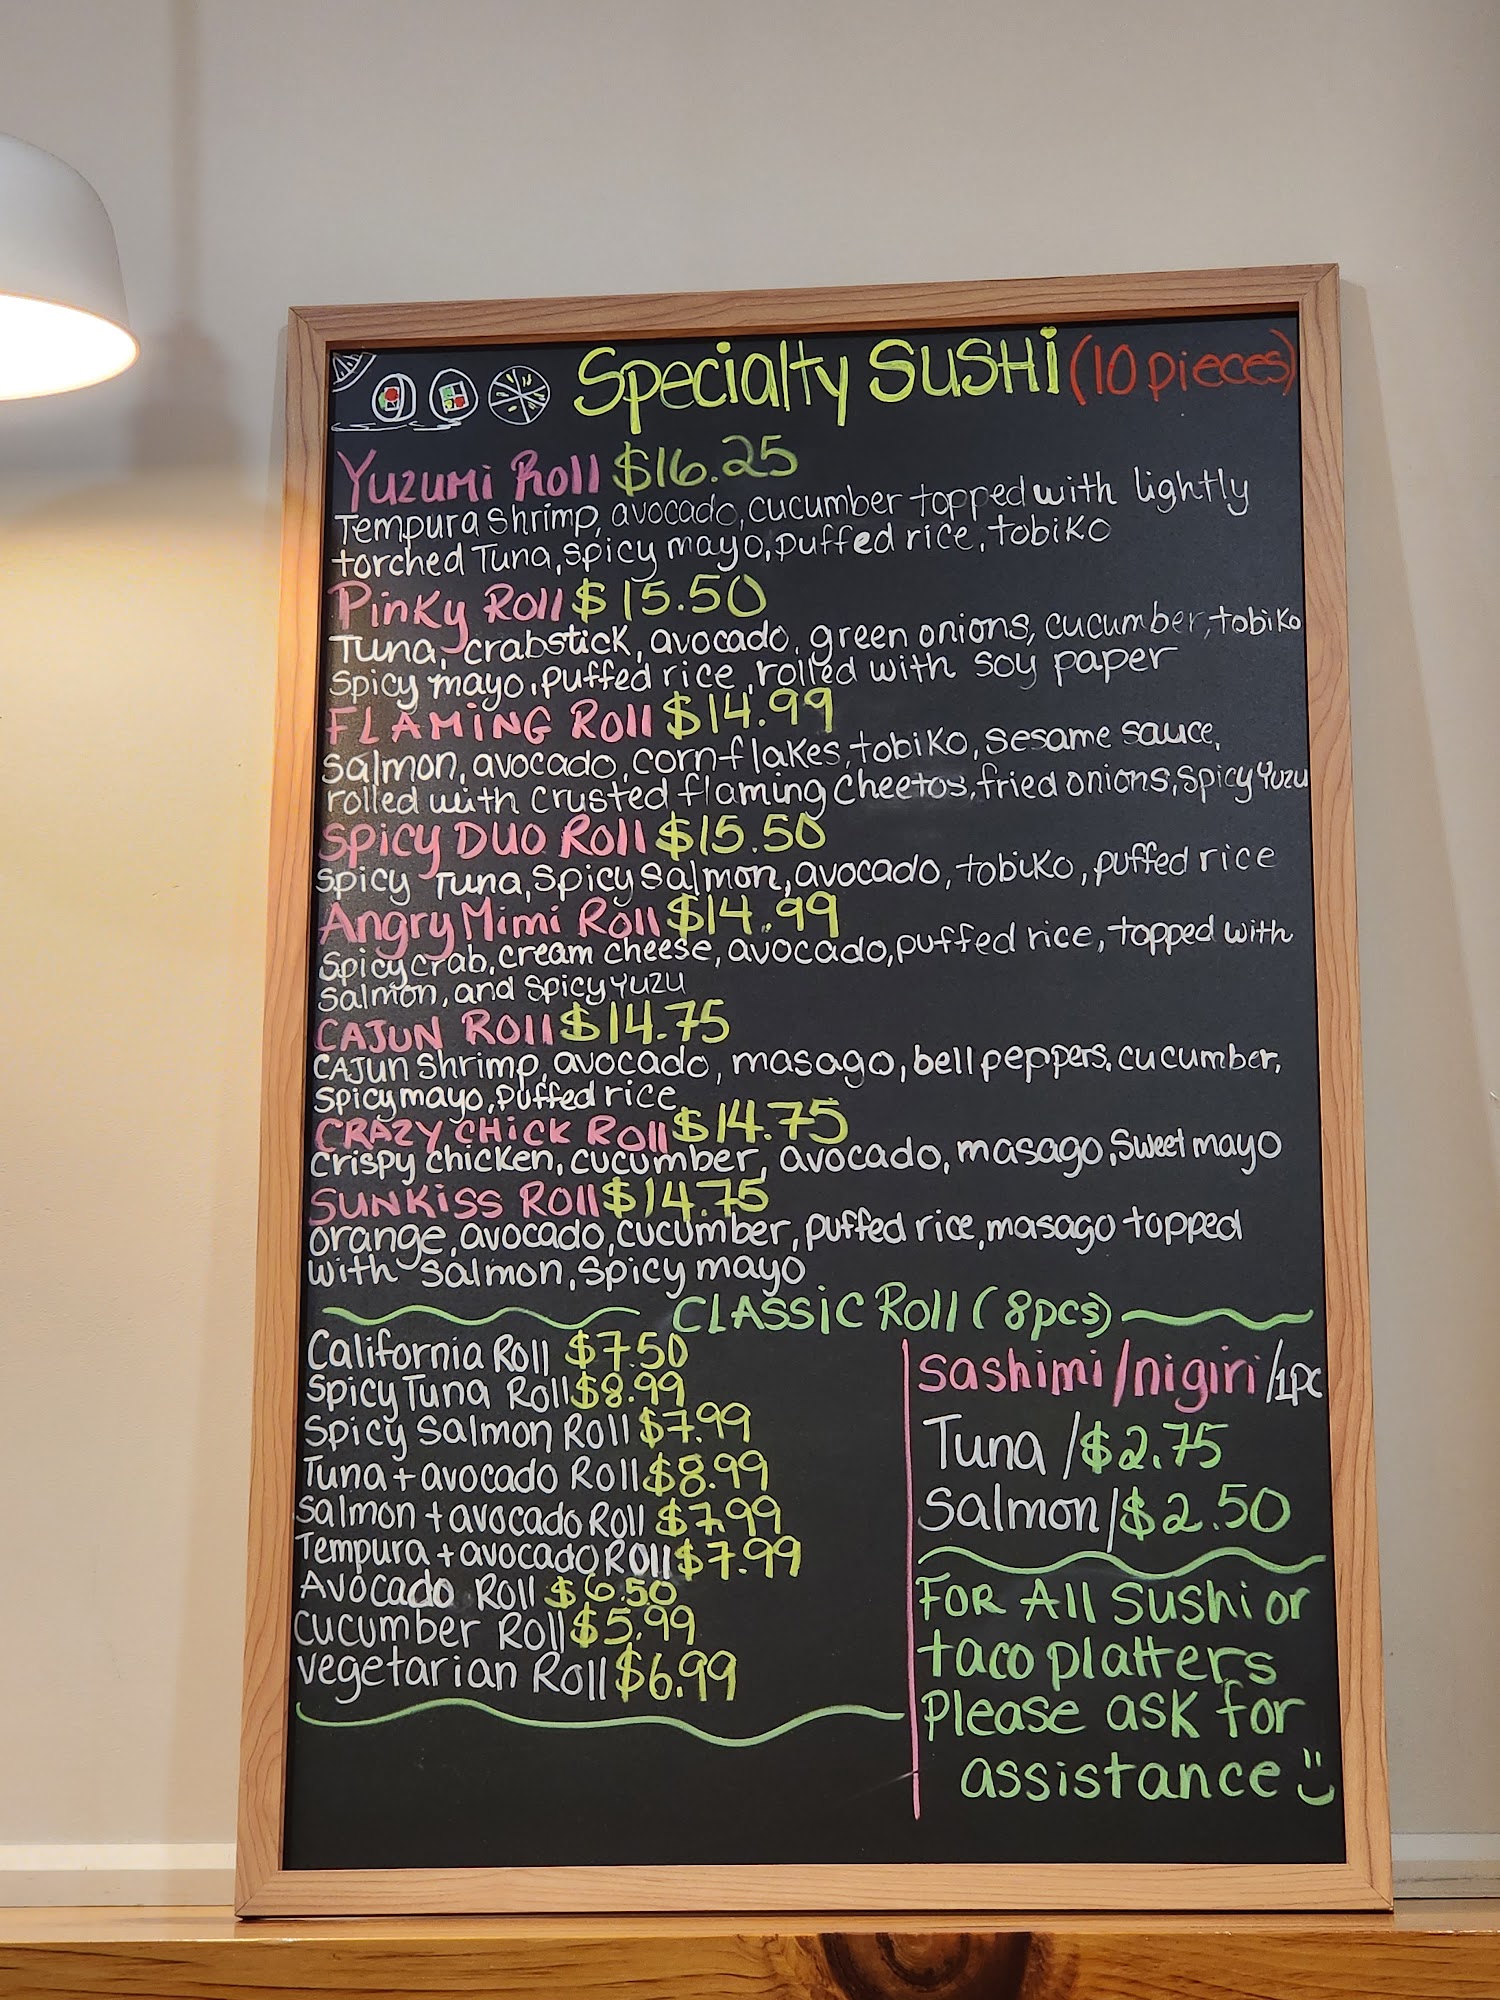 Specialty SUSHi (10 pieces)
Yuzumi Roll $16.25
Tempura Shrimp, avocado, cucumber topped with lightly
torched Tuna, spicy mayo, puffed rice, tobiko
Pinky Roll $15.50
Tuna, crabstick, avocado, green onions, cucumber, tobiko
Spicy mayo, puffed rice, rolled with soy paper
FLAMiNG Roll $14.99
Salmon, avocado, cornflakes, tobiko, sesame sauce,
rolled with crusted flaming Cheetos, fried onions, Spicy Yuzu
Spicy Duo Roll $15.50
Spicy Tuna, Spicy Salmon, avocado, tobiko, puffed rice
Angry Mimi Roll $14.99
Spicy crab, cream cheese, avocado, puffed rice, topped with
Salmon, and Spicy Yuzu
CAJUN Roll $14.75
CAJun Shrimp, avocado, masago, bell peppers, cucumber,
Spicy mayo, puffed rice
CRAZY CHiCK Roll $14.75
Crispy chicken, cucumber, avocado, masago, Sweet mayo
SUNKiSS Roll $14.75
orange, avocado, cucumber, puffed rice, masago topped
with Salmon, Spicy mayo
CLASSiC Roll (8pcs)
California Roll $7.50
Spicy Tuna Roll $8.99
Spicy Salmon Roll $7.99
Tuna + avocado Roll $8.99
Salmon + avocado Roll $7.99
Tempura + avocado Roll $7.99
Avocado Roll $6.50
Cucumber Roll $5.99
vegetarian Roll $6.99
Sashimi/nigiri/1pc
Tuna/$2.75
Salmon/$2.50
FOR All Sushi or
taco platters
Please ask for
assistance